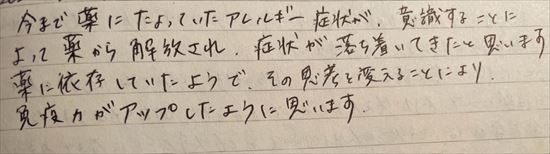 今まで薬にたよっていたアレルギー症状が、意識することに
よって薬から解放され、症状が落ち着いてきたと思います
薬に依存していたようで、その思考を変えることにより、
免疫力がアップしたように思います。